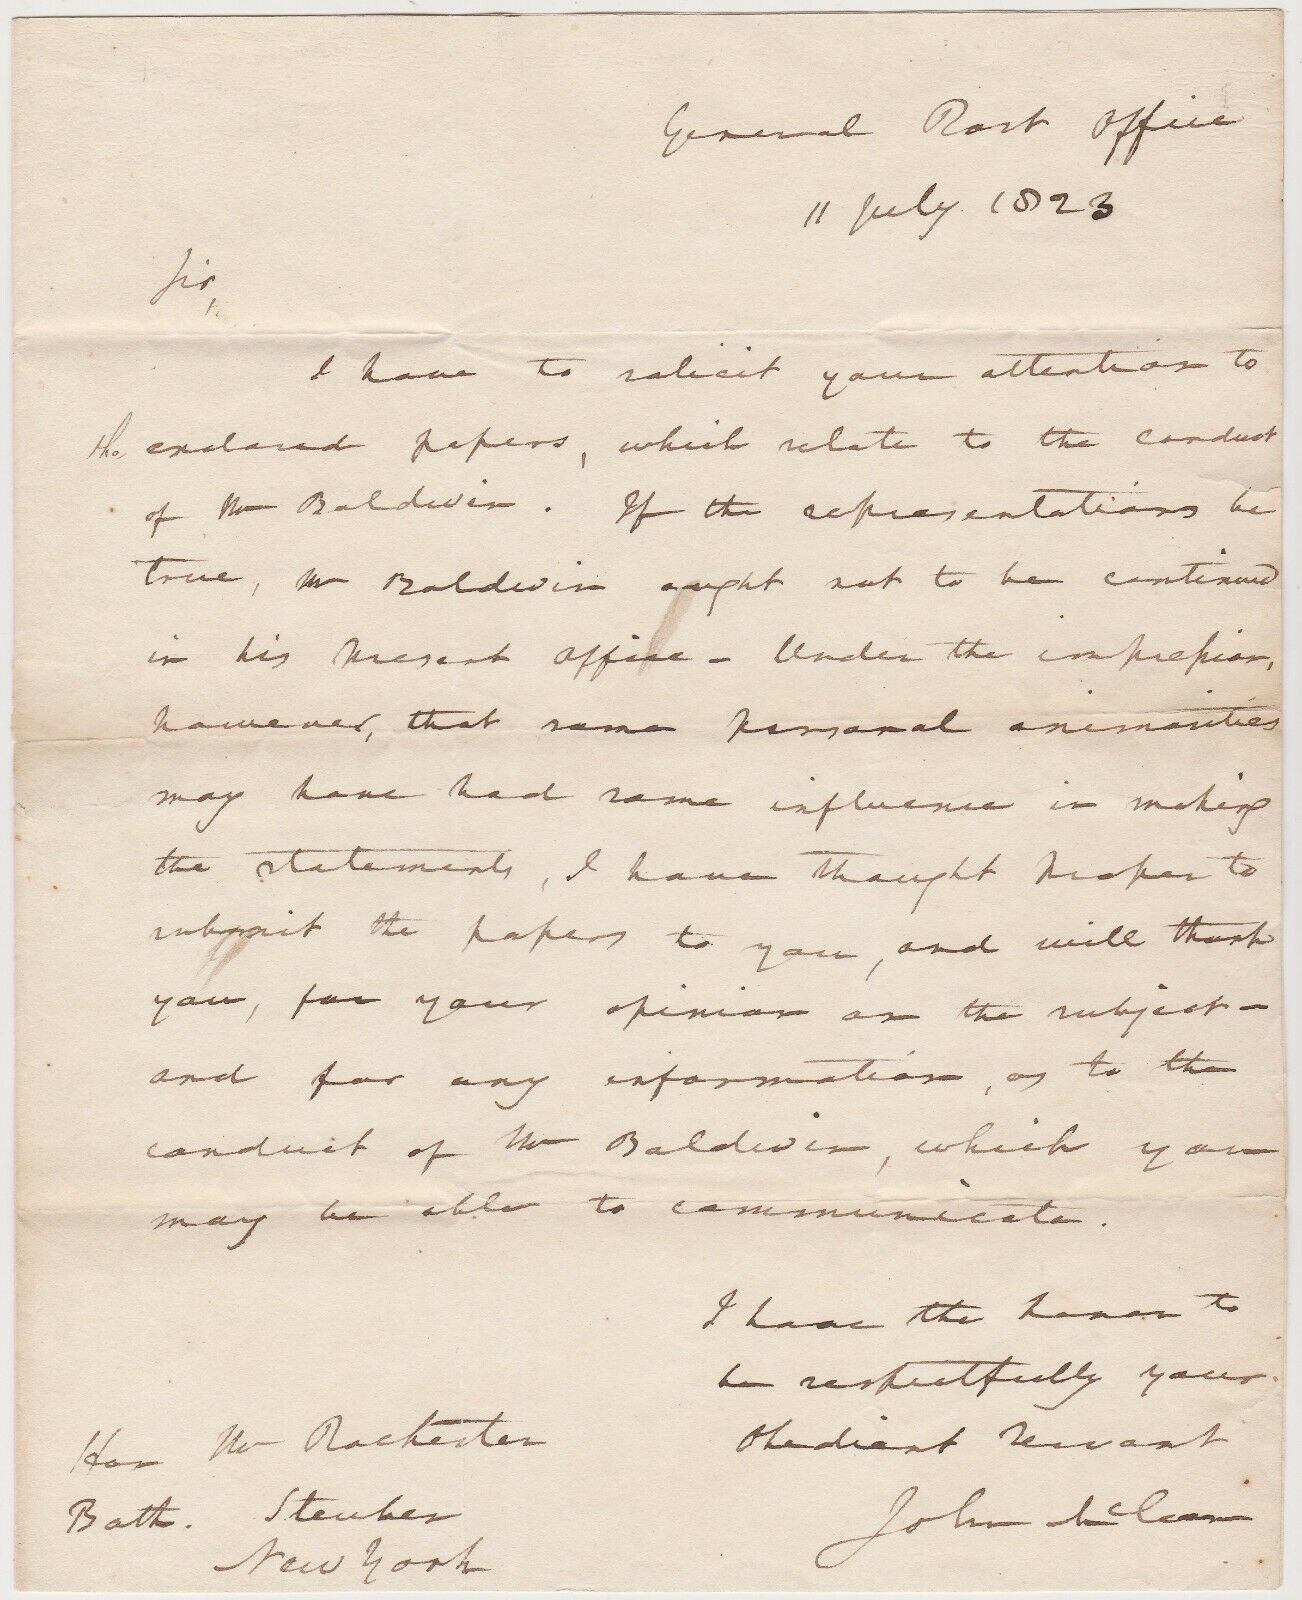 General Post Office
11 July 1823
Sir,
I have to solicit your attention to
the enclosed papers, which relate to the conduct
of Mr Baldwin. If the representations be
true, Mr Baldwin ought not to be continued
in his present office - Under the impression,
however, that some personal animosities
may have had some influence in making
the statements, I have thought proper to
submit the papers to you, and will thank
you, for your opinion on the subject -
and for any information, as to the
conduct of Mr Baldwin, which you
may be able to communicate.
I have the honor to
be respectfully your
Obedient servant
John McLean
Hon Mr Rochester
Bath. Steuben
New York